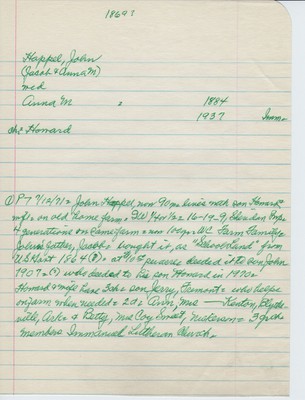 1869?
Happel, John
(Jacob & Anna M)
wed
Anna M = 1884
1937 Imm.
ch: Howard
① PT 7/12/71 = John Happel, now 90 m lives with son Howard &
wf. on old home farm = SW 1/4
4 generations on same farm = now
John's father, Jacob = bought it, as "School Land" from
1864 (?) = at $10 per acre deeded it to son John
1907 = (?) who deeded to his son Howard in 1970 =
Howard & wife have 3 ch = son Jerry, Fremont = who helps
on farm when needed = 2 d = Ann, Mrs — Kenton, Blythe-
ville, Ark. = & Betty, Mrs Coy Smeal, Nickerson =
members Immanuel Lutheran Church.